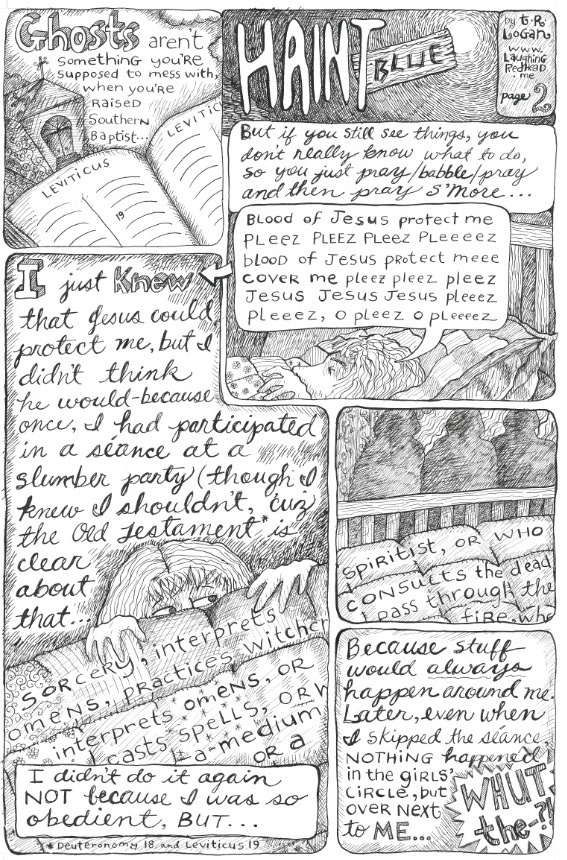 Ghosts aren't
something you're
supposed to mess with,
when you're
RAISED
Southern
Baptist...
LEVITICUS
19
LEVITIC
HAINT
BLUE
by T.R.
LOGAN
www.
Laughing
Redhead
.me
page 2
But if you still see things, you
don't really know what to do,
so you just pray/babble/pray
and then pray s'more...
Blood of Jesus protect me
PLeeZ PLEEZ PLeeZ PLeeeeZ
blood of Jesus protect meee
COVER me pleez pleez pleez
Jesus Jesus Jesus pleeez
pleeez, o pleez o pleeeez
I just Knew
that Jesus could
protect me, but I
didn't think
he would-because
once, I had participated
in a séance at a
slumber party (though I
knew I shouldn't, 'cuz
the Old Testament* is
clear
about
that...
SORCERY, interprets
omens, PRACTICES witchcr
interprets omens, OR
casts spells, OR w
a-medium
OR a
I didn't do it again
NOT because I was so
obedient, BUT...
*Deuteronomy 18 and Leviticus 19
SPIRITIST, OR WHO
CONSULTS the dead
pass through the
fiRe, wh
Because stuff
would always
happen around me.
Later, even when
I skipped the séance,
NOTHING happened
in the GIRLS'
CIRCLE, but
OVER Next
to ME...
WHUT
the-?!